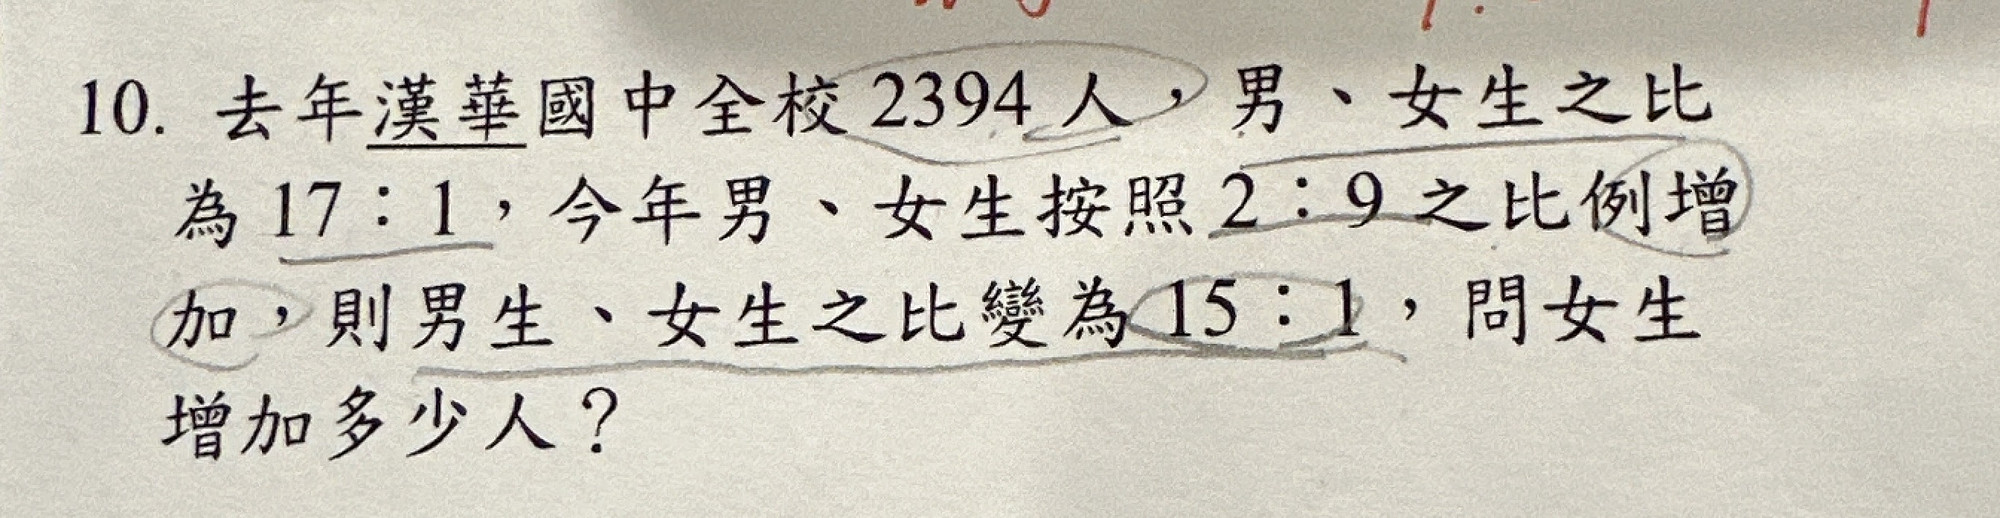 10. 去年漢華國中全校 2394 人，男、女生之比
為 17：1，今年男、女生按照 2：9 之比例增
加，則男生、女生之比變為 15：1，問女生
增加多少人？